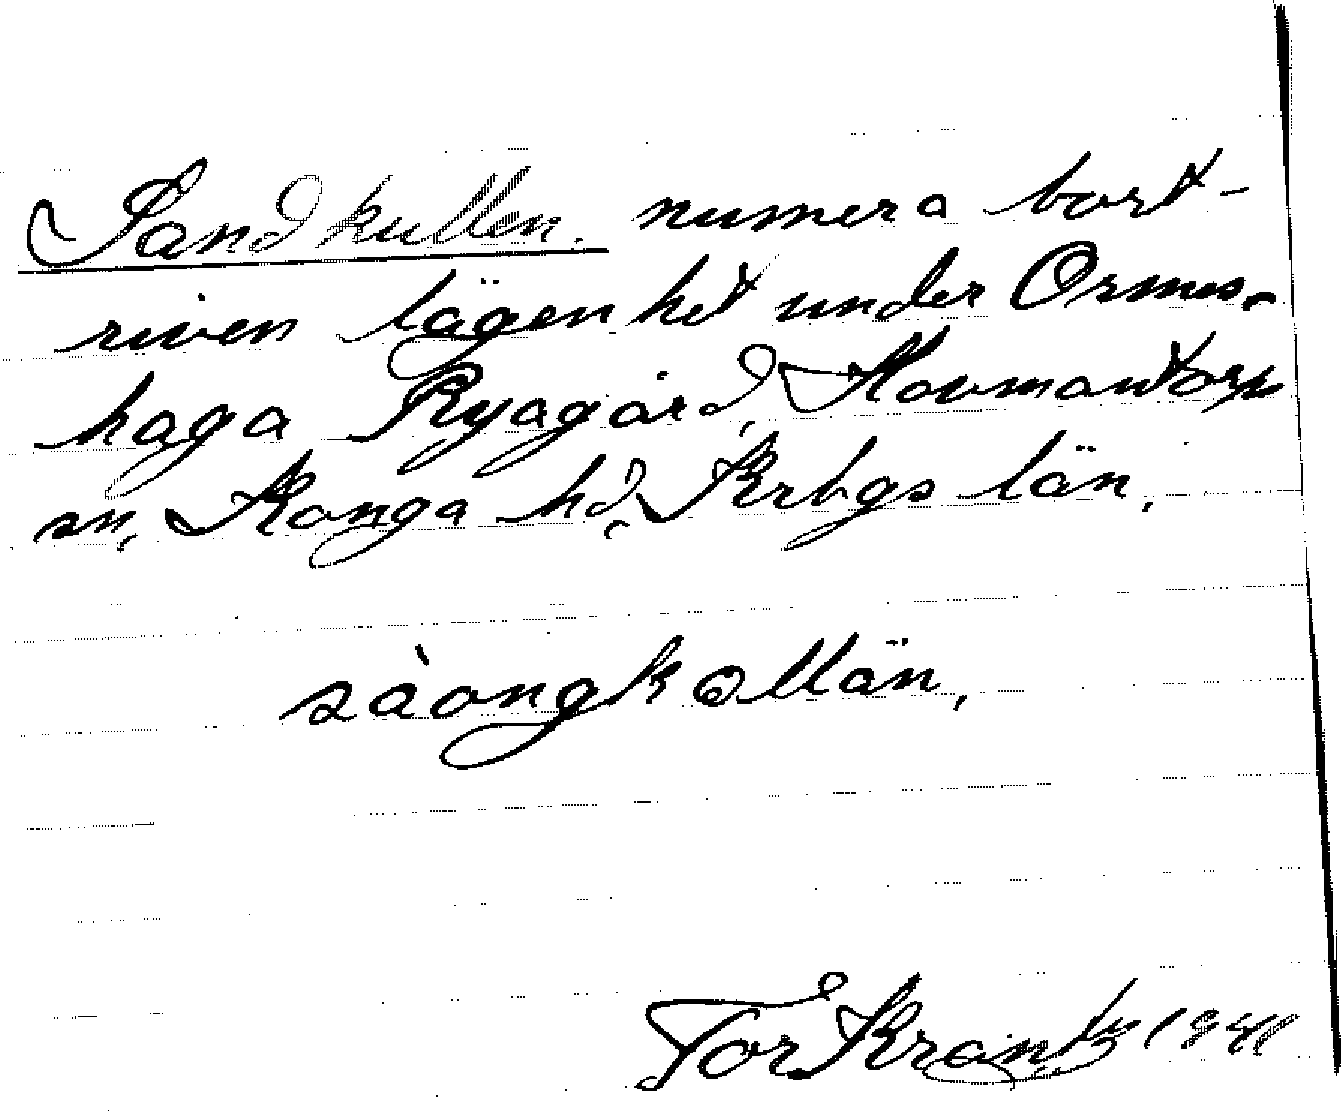 Sandkullen. numera bort-
riven lägenhet under Ormes-
haga Ryagård, Hovmantorp
sn, Konga hd, Krbgs län.
sàongkəllän,
Tor Krantz 1941